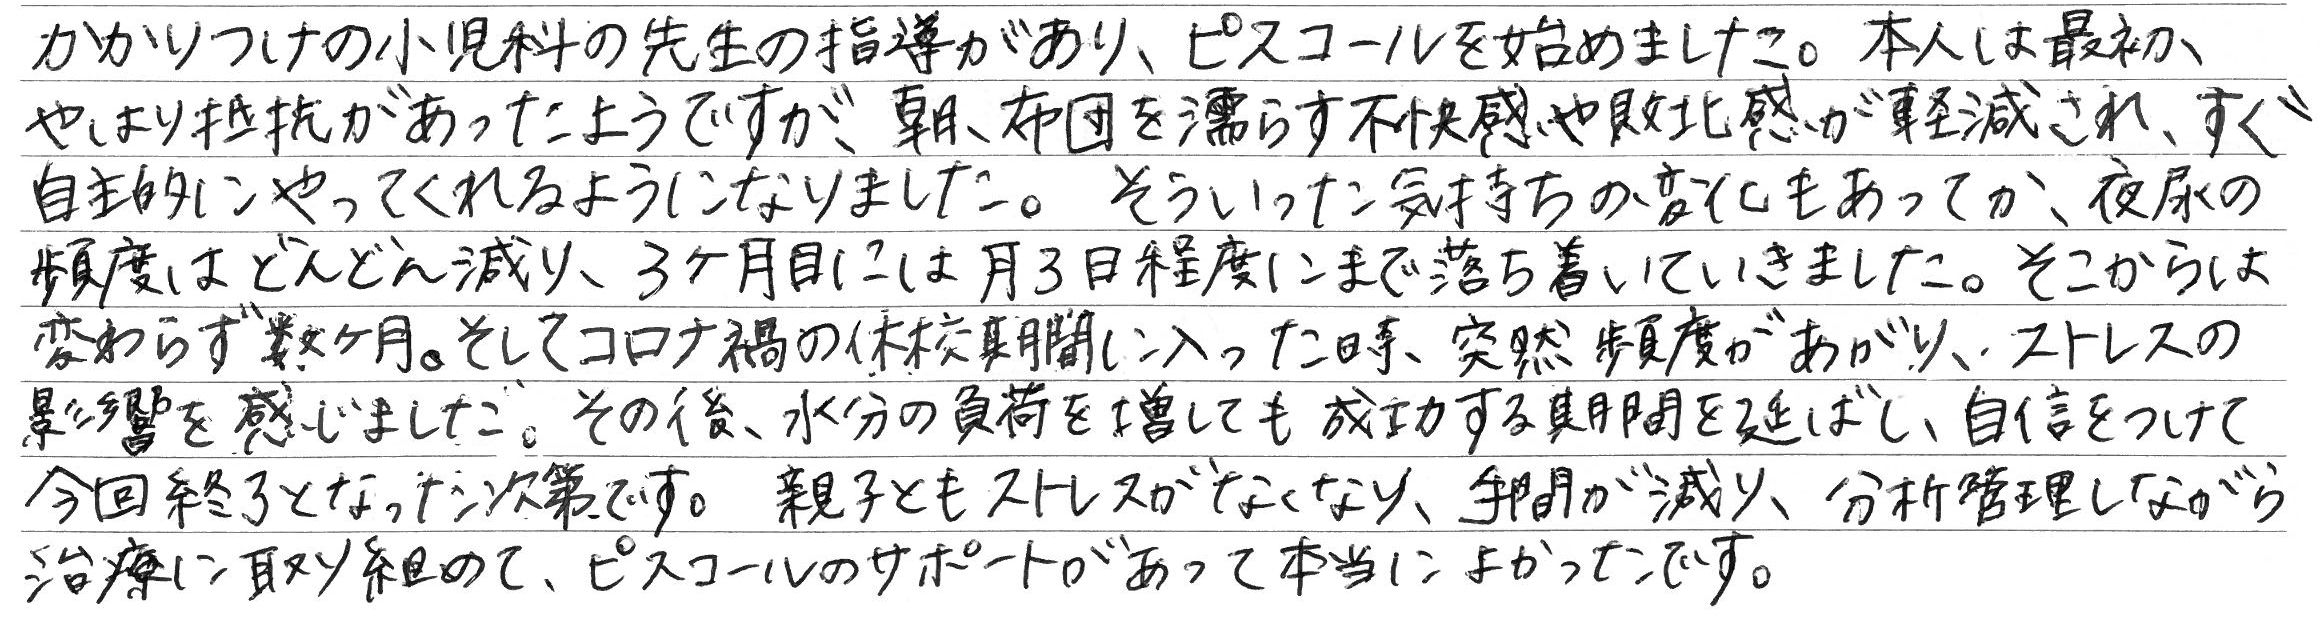 かかりつけの小児科の先生の指導があり、ピスコールを始めました。本人は最初、
やはり抵抗があったようですが、朝、布団を濡らす不快感や敗北感が軽減され、すぐ
自主的にやってくれるようになりました。 そういった気持ちの変化もあってか、夜尿の
頻度はどんどん減り、3ヶ月目には月3日程度にまで落ち着いていきました。そこからは
変わらず数ヶ月。そしてコロナ禍の休校期間に入った時、突然頻度があがり、ストレスの
影響を感じました。その後、水分の負荷を増しても成功する期間を延ばし、自信をつけて
今回終了となった次第です。 親子ともストレスがなくなり、手間が減り、分析管理しながら
治療に取り組めて、ピスコールのサポートがあって本当によかったです。